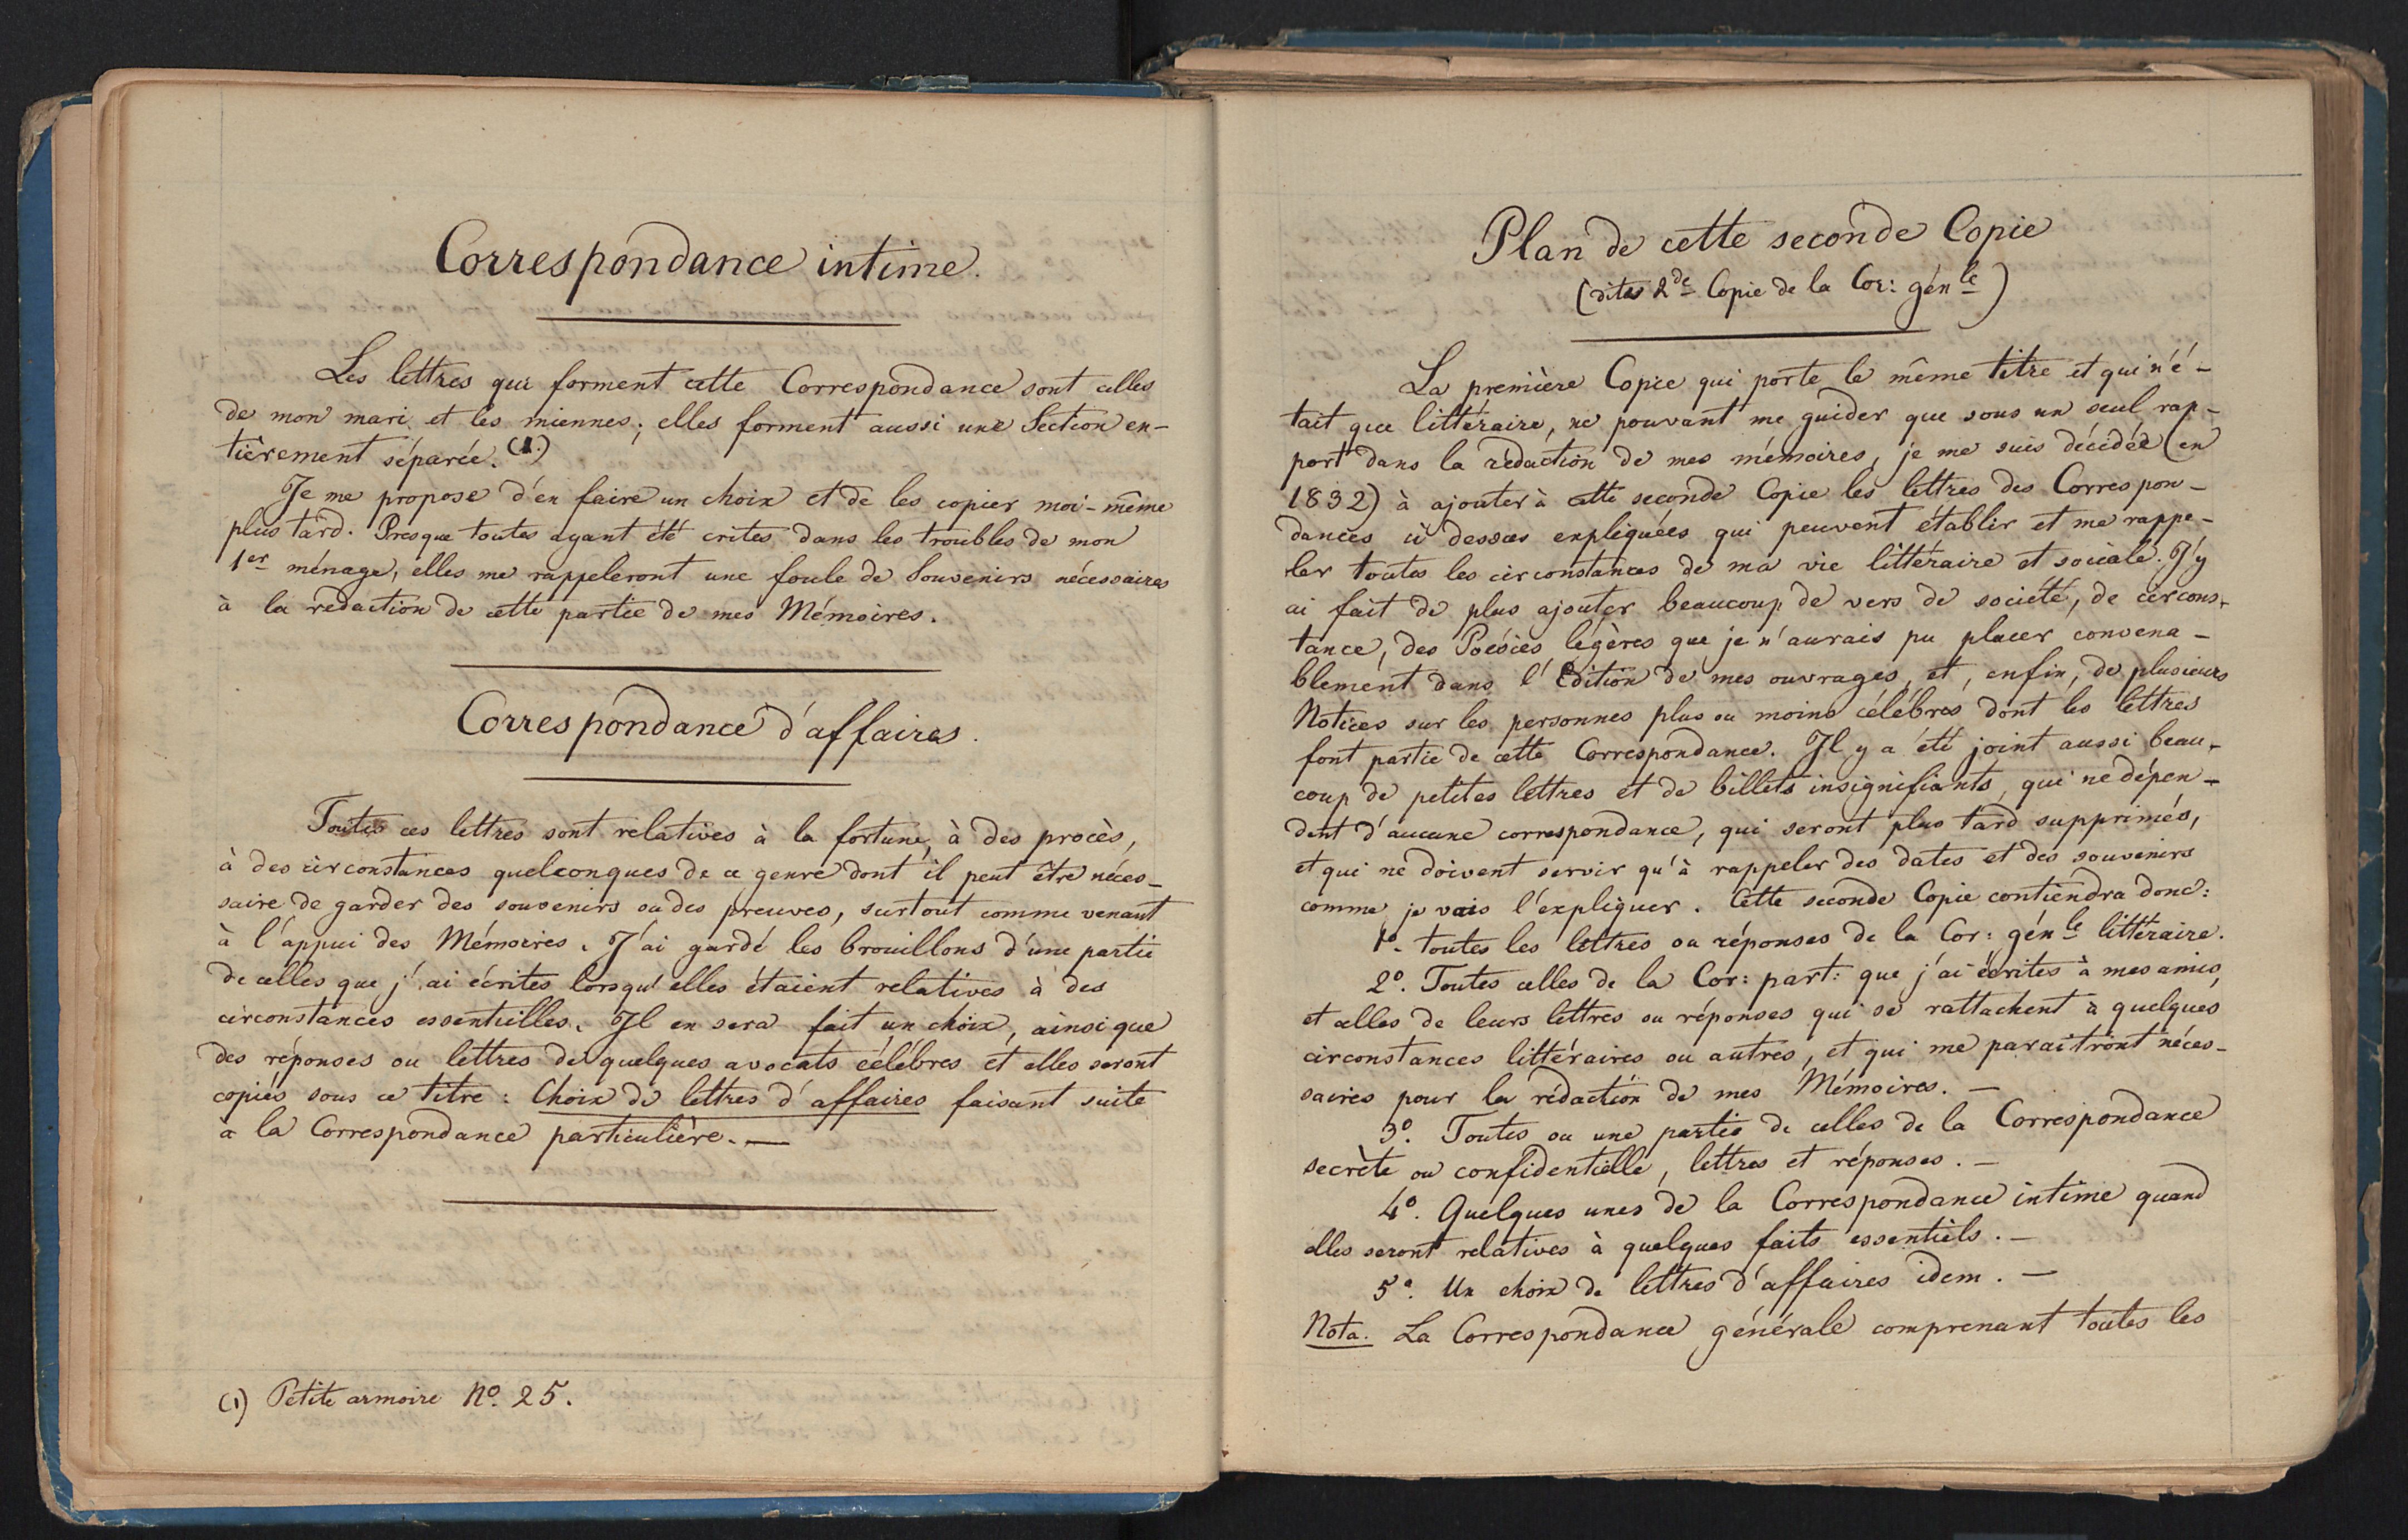 Correspondance intime.
Les lettres qui forment cette Correspondance sont celles
de mon mari et les miennes; elles forment aussi une Section en-
tièrement séparée. (1.)
Je me propose d'en faire un choix et de les copier moi-même
plus tard. Presque toutes ayant été crites dans les troubles de mon
1er ménage, elles me rappeleront une foule de Souvenirs nécessaires
à la rédaction de cette partie de mes Mémoires.
Correspondance d'affaires.
Toutes ces lettres sont relatives à la fortune, à des procès,
à des circonstances quelconques de ce genre dont il peut être néces-
saire de garder des souvenirs ou des preuves, surtout comme venant
à l'appui des Mémoires. J'ai gardé les brouillons d'une partie
de celles que j'ai écrites lorsqu'elles étaient relatives à des
circonstances essentielles. Il en sera fait un choix, ainsi que
des réponses ou lettres de quelques avocats célèbres et elles seront
copiés sous ce titre : Choix de lettres d'affaires faisant suite
à la Correspondance particulière. —
(1) Petite armoire No. 25.
Plan de cette seconde Copie
(dite 2de Copie de la Cor: génle)
La première Copie qui porte le même titre et qui n'é-
tait que littéraire, ne pouvant me guider que sous un seul rap-
port dans la rédaction de mes mémoires, je me suis décidée (en
1832) à ajouter à cette seconde Copie les lettres des Correspon-
dances ci dessus expliquées qui peuvent établir et me rappe-
ler toutes les circonstances de ma vie littéraire et sociale. J'y
ai fait de plus ajouter beaucoup de vers de société, de circons-
tance, des Poésies légères que je n'aurais pu placer convena-
blement dans l'Edition de mes ouvrages, et, enfin, de plusieurs
Notices sur les personnes plus ou moins célèbres dont les lettres
font partie de cette Correspondance. Il y a été joint aussi beau-
coup de petites lettres et de billets insignifiants, qui ne dépen-
dent d'aucune correspondance, qui seront plus tard supprimés,
et qui ne doivent servir qu'à rappeler des dates et des souvenirs
comme je vais l'expliquer. Cette seconde Copie contiendra donc:
1o. toutes les lettres ou réponses de la Cor: génle littéraire.
2o. Toutes celles de la Cor: part: que j'ai écrites à mes amis,
et celles de leurs lettres ou réponses qui se rattachent à quelques
circonstances littéraires ou autres, et qui me paraitront néces-
saires pour la rédaction de mes Mémoires. —
3o. Toutes ou une partie de celles de la Correspondance
secrète ou confidentielle, lettres et réponses. —
4o. Quelques unes de la Correspondance intime quand
elles seront relatives à quelques faits essentiels. —
5o. Un choix de lettres d'affaires idem. —
Nota. La Correspondance générale comprenant toutes les